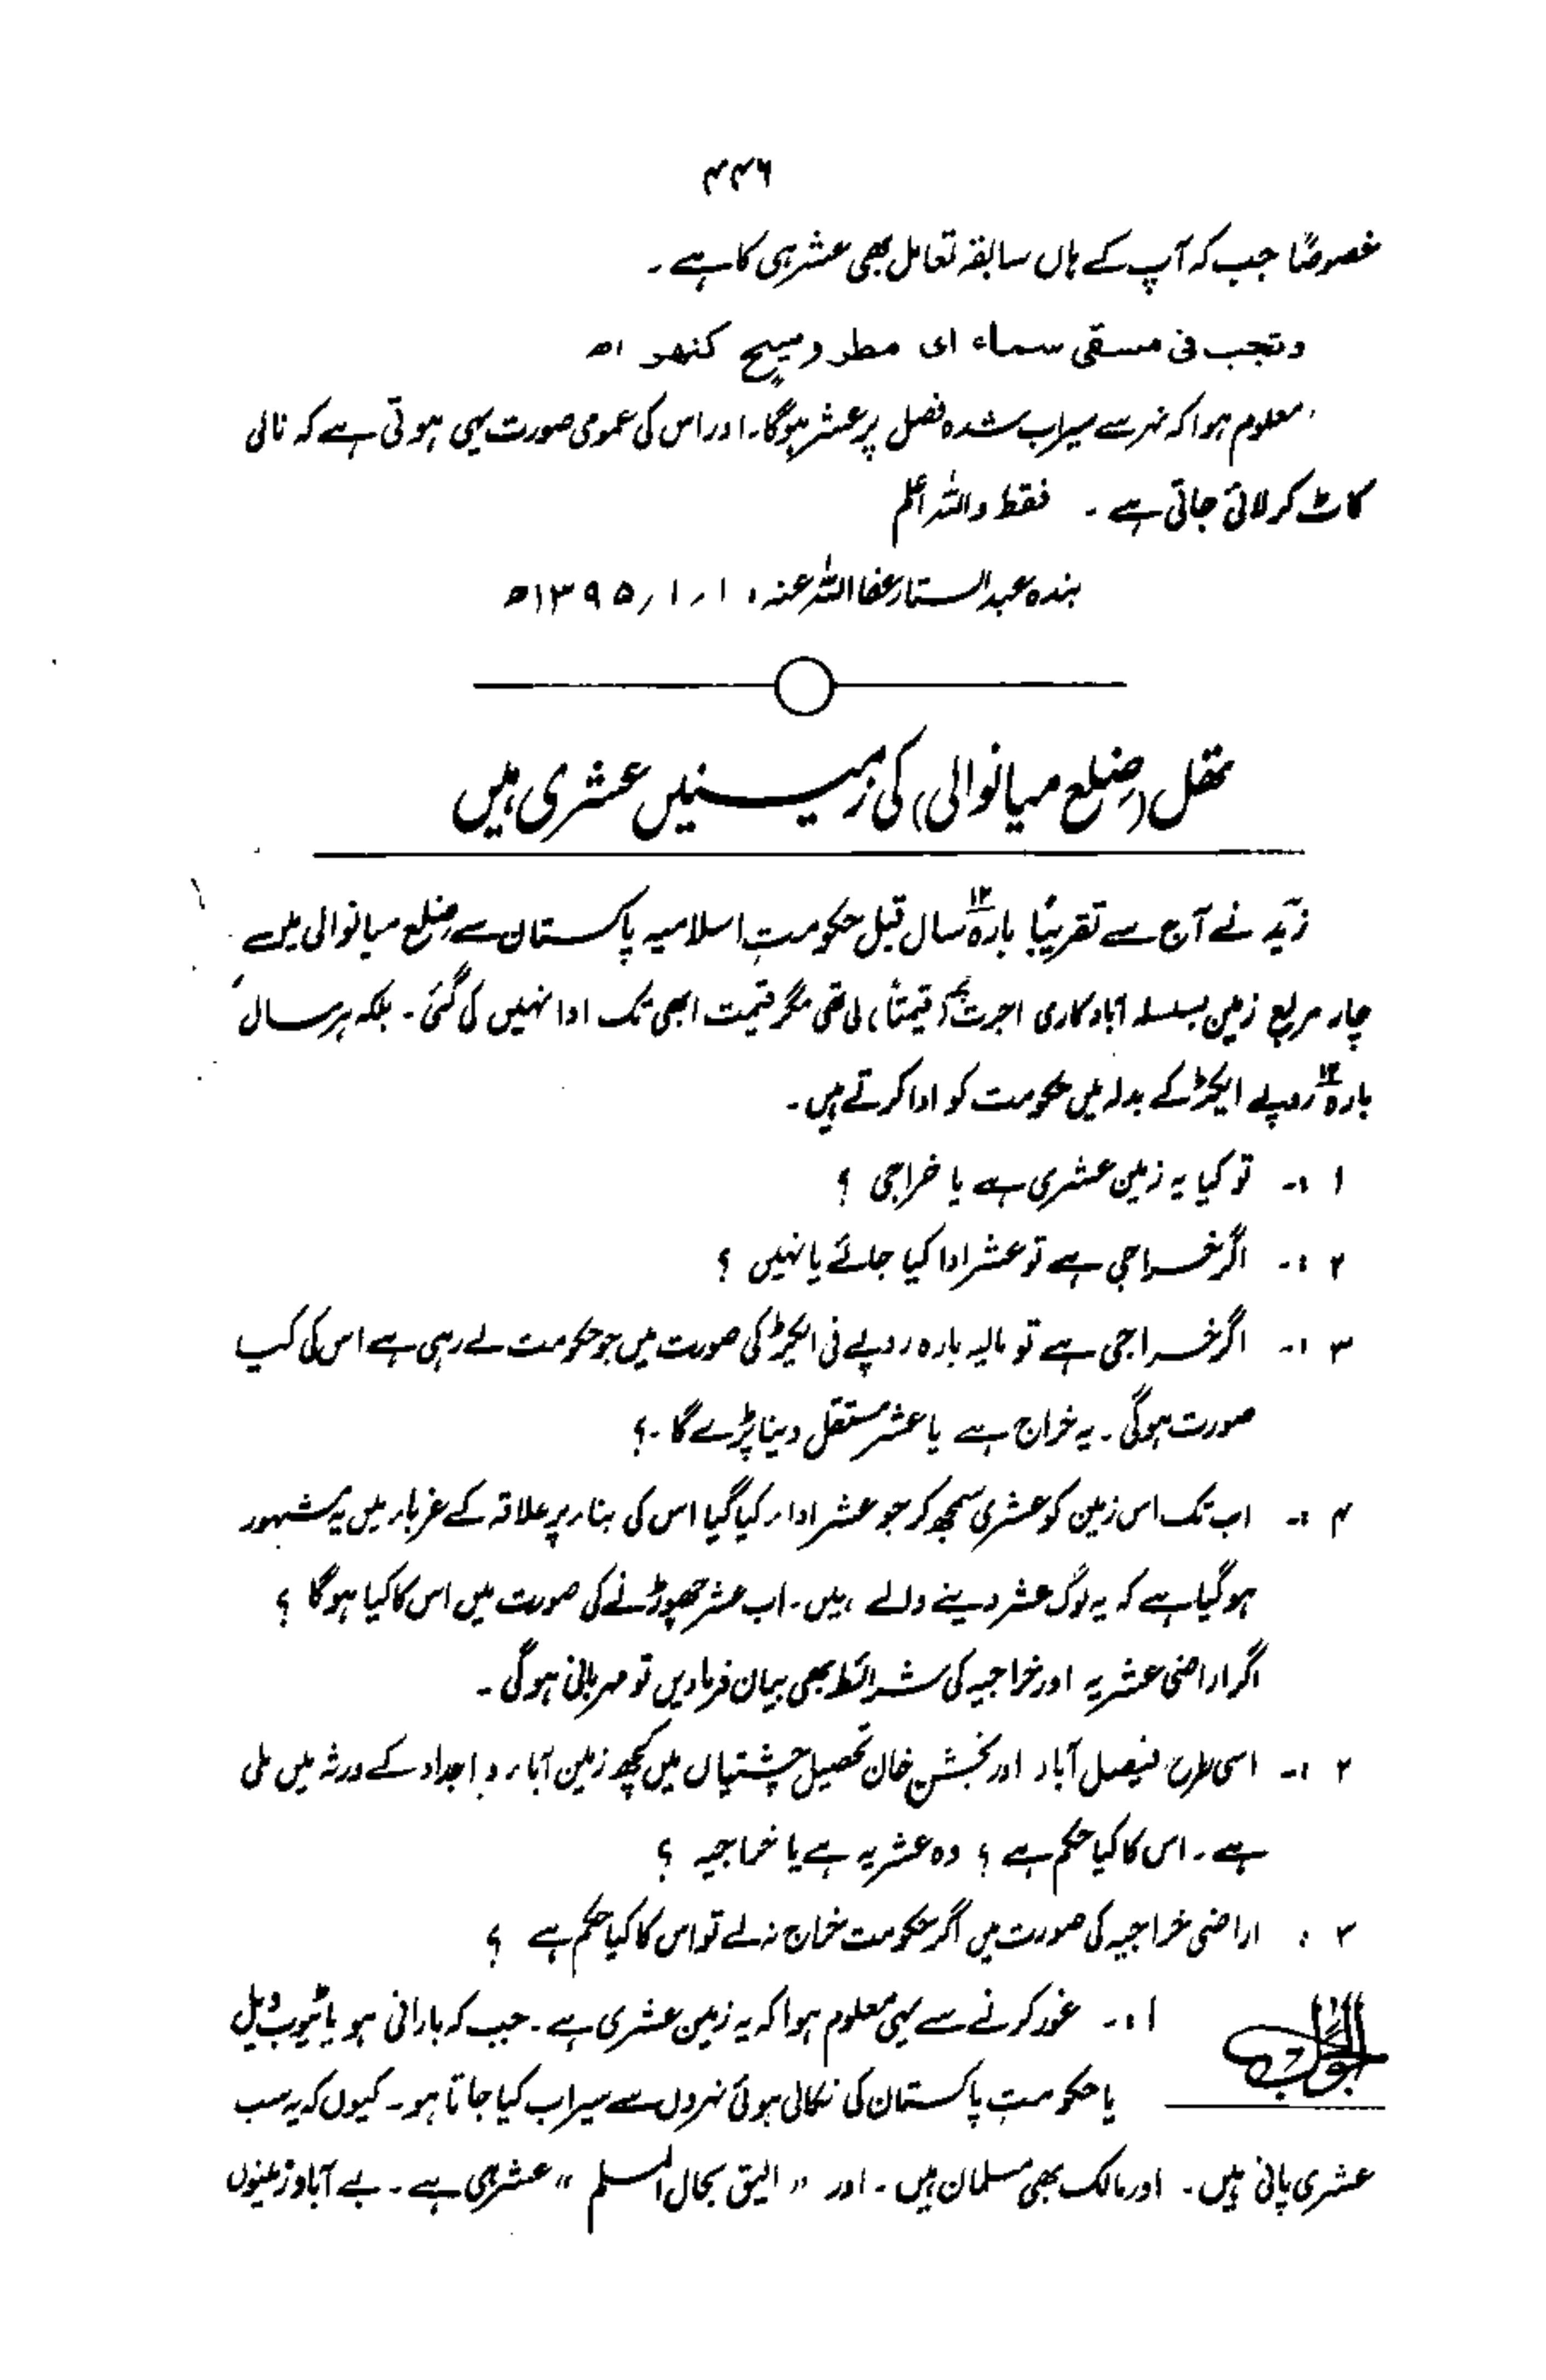 ۴۴۶
خصوصًا جب کہ آپ کے ہاں سابقہ تعامل بھی عشر ہی کا ہے ۔
وتجب فی مسقی سماء ای مطر وسیح کنھر اھ
معلوم ہوا کہ نہر سے سیراب شدہ فصل پر عشر ہوگا۔ اور اس کی عمومی صورت یہی ہوتی ہے کہ نالی
کاٹ کر لائی جاتی ہے ۔ فقط واللہ اعلم
بندہ عبدالستار عفا اللہ عنہ ، ۱ ر ۱ ر ۱۳۹۵ھ
تھل (ضلع میانوالی) کی زمینیں عشری ہیں
زید نے آج سے تقریبًا بارہ ۱۲ سال قبل حکومتِ اسلامیہ پاکستان سے ضلع میانوالی میں
چار مربع زمین بسلسلہ آباد کاری اجرت پر (قیمتاً) لی تھی مگر قیمت ابھی تک ادا نہیں کی گئی ۔ بلکہ ہر سال
بارہ ۱۲ روپلے ایکڑ کے بدلہ میں حکومت کو ادا کرتے ہیں ۔
۱ :۔ تو کیا یہ زمین عشری ہے یا خراجی ؟
۲ :۔ اگر خراجی ہے تو عشر ادا کیا جائے یا نہیں ؟
۳ :۔ اگر خراجی ہے تو مالیہ بارہ روپے فی ایکڑ کی صورت میں جو حکومت لے رہی ہے اس کی کیا
صورت ہوگی ۔ یہ خراج ہے یا عشر مستقل دینا پڑے گا ۔؟
۴ :۔ اب تک اس زمین کو عشری سمجھ کر جو عشر اداء کیا گیا اس کی بناء پر علاقہ کے غرباء میں یہ مشہور
ہوگیا ہے کہ یہ لوگ عشر دینے والے ہیں ۔ اب عشر چھوڑنے کی صورت میں اس کا کیا ہوگا ؟
اگر اراضی عشریہ اور خراجیہ کی شرائط بھی بیان فرمادیں تو مہربانی ہوگی ۔
۲ :۔ اسی طرح فیصل آباد اور بخشن خان تحصیل چشتیاں میں کچھ زمین آباء و اجداد کے ورثہ میں ملی
ہے ۔ اس کا کیا حکم ہے ؟ وہ عشریہ ہے یا خراجیہ ؟
۳ : اراضی خراجیہ کی صورت میں اگر حکومت خراج نہ لے تو اس کا کیا حکم ہے ؟
الجواب ۱ :۔ غور کرنے سے یہی معلوم ہوا کہ یہ زمین عشری ہے ۔ جب کہ بارانی ہو یا ٹیوب ویل
یا حکومتِ پاکستان کی نکالی ہوئی نہروں سے سیراب کیا جاتا ہو ۔ کیوں کہ یہ سب
عشری پانی ہیں ۔ اور مالک بھی مسلمان ہیں ۔ اور " الیق بحال المسلم " عشر ہی ہے ۔ بے آباد زمینوں